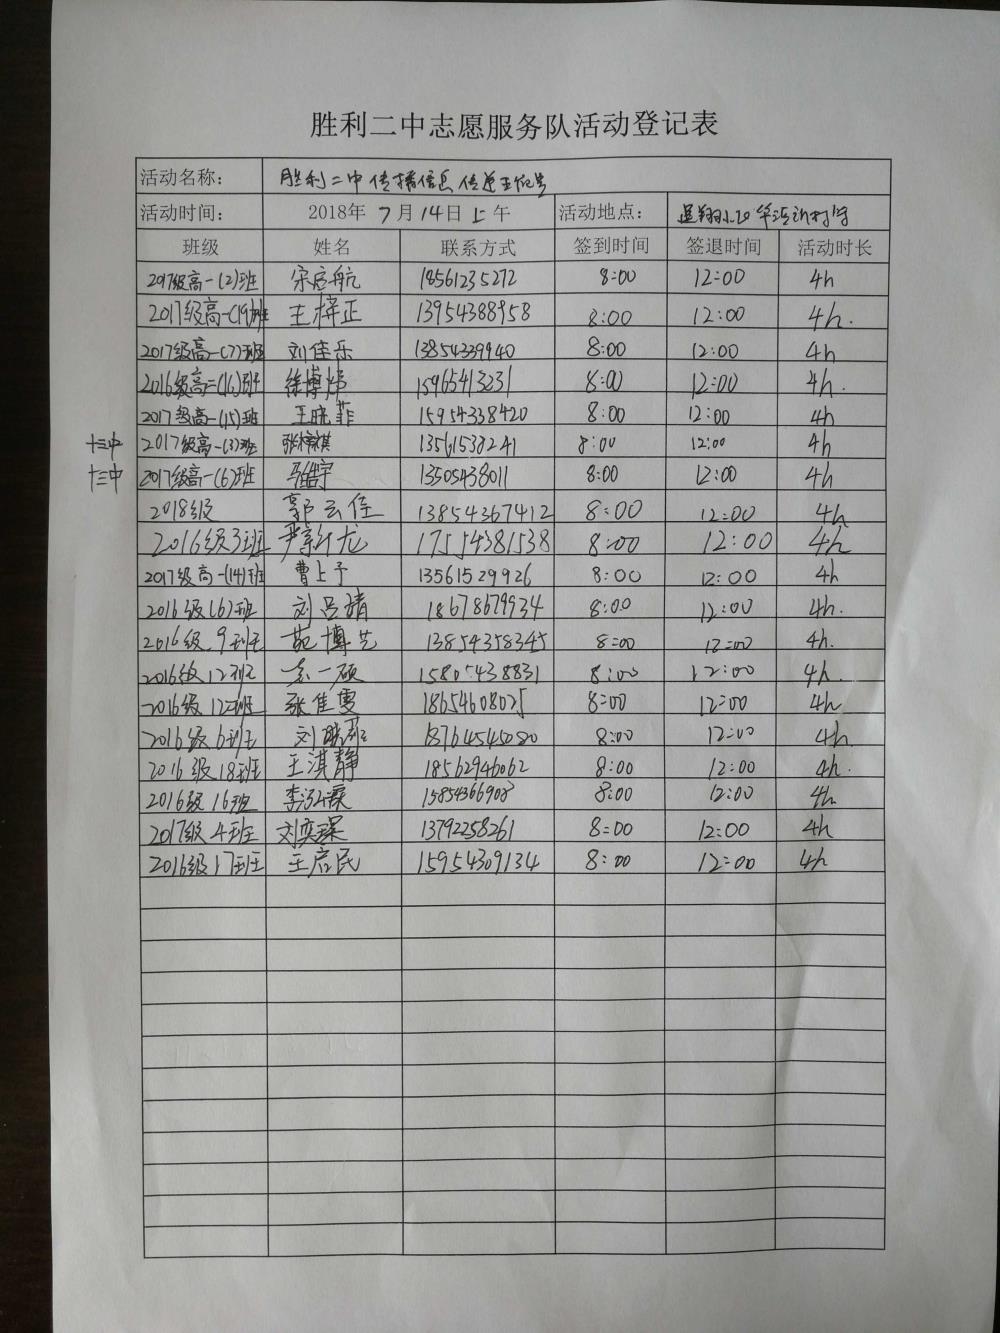 胜利二中志愿服务队活动登记表
活动名称： 胜利二中传播信息传递
活动时间： 2018年 7月14日上午 活动地点：
班级 姓名 联系方式 签到时间 签退时间 活动时长
2017级高一(2)班 宋启航 18561235272 8:00 12:00 4h
2017级高一(19)班 王梓正 13954388958 8:00 12:00 4h.
2017级高一(7)班 刘佳乐 13854339940 8:00 12:00 4h
2016级高二(16)班 徐博炜 15965413231 8:00 12:00 4h.
2017级高一(15)班 王晓菲 15954338420 8:00 12:00 4h
十三中 2017级高一(3)班 张梓祺 13561538241 8:00 12:00 4h
十三中 2017级高一(6)班 13505438011 8:00 12:00 4h
2018级 郭云佳 13854367412 8:00 12:00 4h
2016级3班 严新龙 17554381538 8:00 12:00 4h
2017级高一(14)班 曹上予 13561529926 8:00 12:00 4h
2016级(6)班 刘吕晴 18678679934 8:00 12:00 4h.
2016级9班 苑博艺 13854358345 8:00 12:00 4h.
2016级12班 袁一硕 15805438831 8:00 12:00 4h.
2016级12班 张佳雯 18654608025 8:00 12:00 4h
2016级6班 刘晓 18764545080 8:00 12:00 4h.
2016级18班 王淇静 18562946062 8:00 12:00 4h.
2016级16班 李泓霖 15854366908 8:00 12:00 4h
2017级4班 刘奕琛 13792258261 8:00 12:00 4h
2016级17班 王启民 15954309134 8:00 12:00 4h